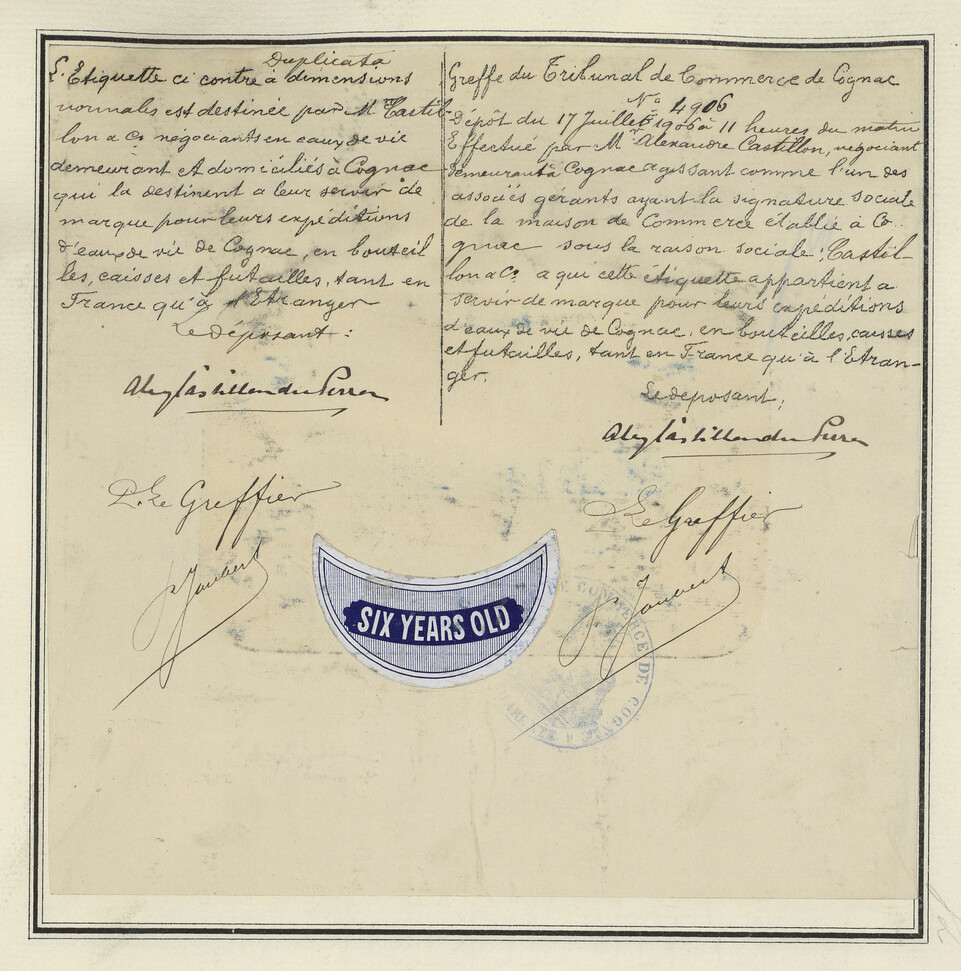 Duplicata
L'Etiquette ci contre à dimensions
normales est destinée par MM Castil-
lon & Co négociants en eaux de vie
demeurant et domiciliés à Cognac
qui la destinent a leur servir de
marque pour leurs expéditions
d'eaux de vie de Cognac, en bouteil
les, caisses et futailles, tant en
France qu'à l'Etranger
Le déposant :
Alex Castillon du Perron
P. Le Greffier
Greffe du Tribunal de Commerce de Cognac
No 4906
Dépôt du 17 Juillet 1906 à 11 heures du matin
Effectué par Mr Alexandre Castillon, négociant
demeurant à Cognac agissant comme l'un des
associés gérants ayant la signature sociale
de la maison de Commerce établie à Co-
gnac sous la raison sociale : Castil-
lon & Co a qui cette étiquette appartient a
servir de marque pour leurs expéditions
d'eaux de vie de Cognac, en bouteilles, caisses
et futailles, tant en France qu'à l'Etran-
ger.
Le déposant ;
Alex Castillon du Perron
Le Greffier
SIX YEARS OLD
DE COMMERCE DE COGNAC